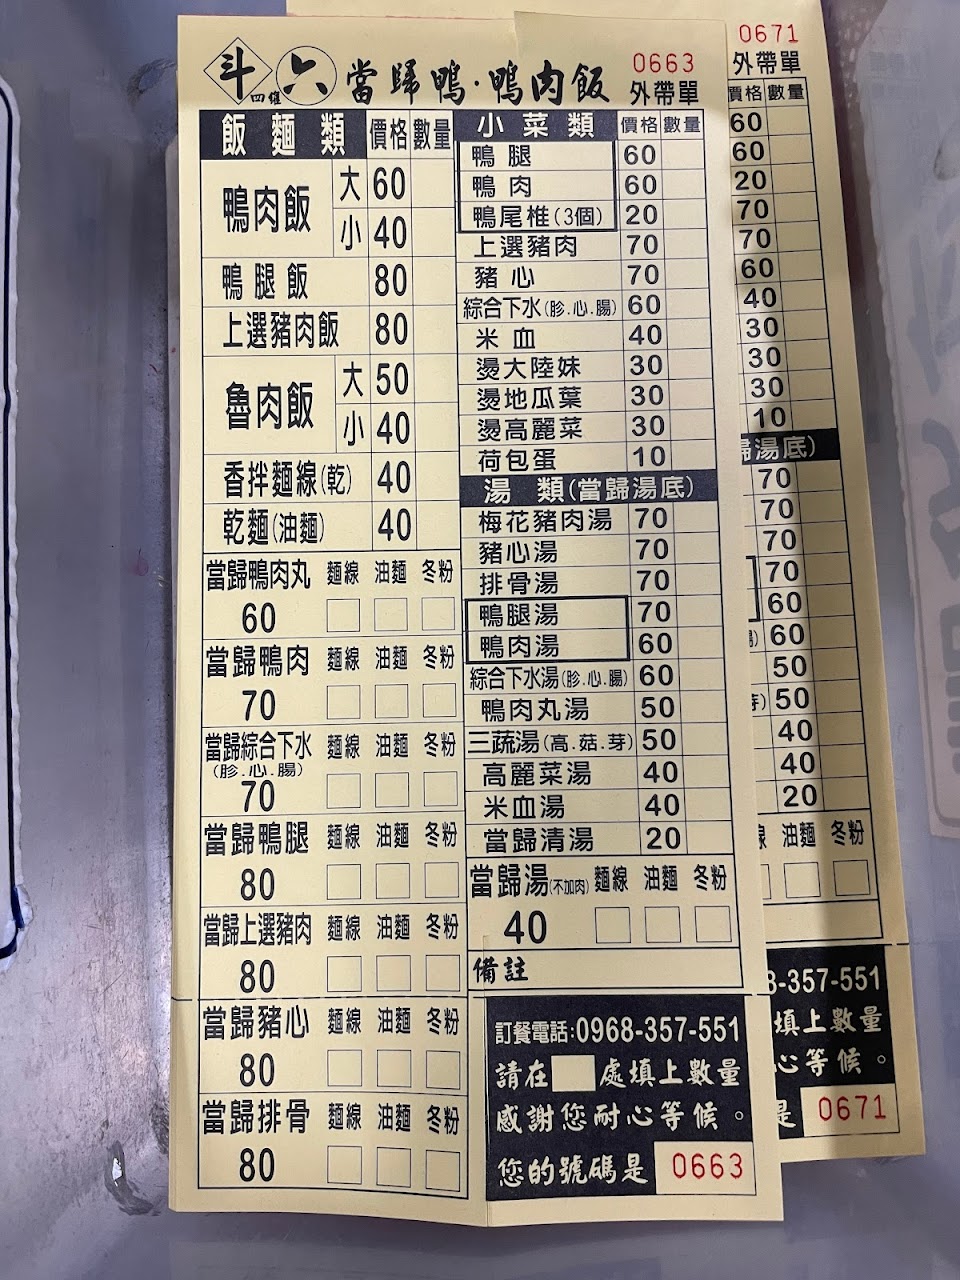 斗六當歸鴨·鴨肉飯
四維
0663
外帶單
飯麵類 價格 數量
鴨肉飯 大 60
小 40
鴨腿飯 80
上選豬肉飯 80
魯肉飯 大 50
小 40
香拌麵線(乾) 40
乾麵(油麵) 40
當歸鴨肉丸 麵線 油麵 冬粉
60
當歸鴨肉 麵線 油麵 冬粉
70
當歸綜合下水 麵線 油麵 冬粉
(胗.心.腸)
70
當歸鴨腿 麵線 油麵 冬粉
80
當歸上選豬肉 麵線 油麵 冬粉
80
當歸豬心 麵線 油麵 冬粉
80
當歸排骨 麵線 油麵 冬粉
80
小菜類 價格 數量
鴨腿 60
鴨肉 60
鴨尾椎(3個) 20
上選豬肉 70
豬心 70
綜合下水(胗.心.腸) 60
米血 40
燙大陸妹 30
燙地瓜葉 30
燙高麗菜 30
荷包蛋 10
湯類(當歸湯底)
梅花豬肉湯 70
豬心湯 70
排骨湯 70
鴨腿湯 70
鴨肉湯 60
綜合下水湯(胗.心.腸) 60
鴨肉丸湯 50
三蔬湯(高.菇.芽) 50
高麗菜湯 40
米血湯 40
當歸清湯 20
當歸湯(不加肉) 麵線 油麵 冬粉
40
備註
訂餐電話:0968-357-551
請在 處填上數量
感謝您耐心等候。
您的號碼是 0663
0671
外帶單
價格 數量
60
60
20
70
70
60
40
30
30
30
10
歸湯底)
70
70
70
70
60
60
50
芽) 50
40
40
20
線 油麵 冬粉
8-357-551
填上數量
心等候。
是 0671